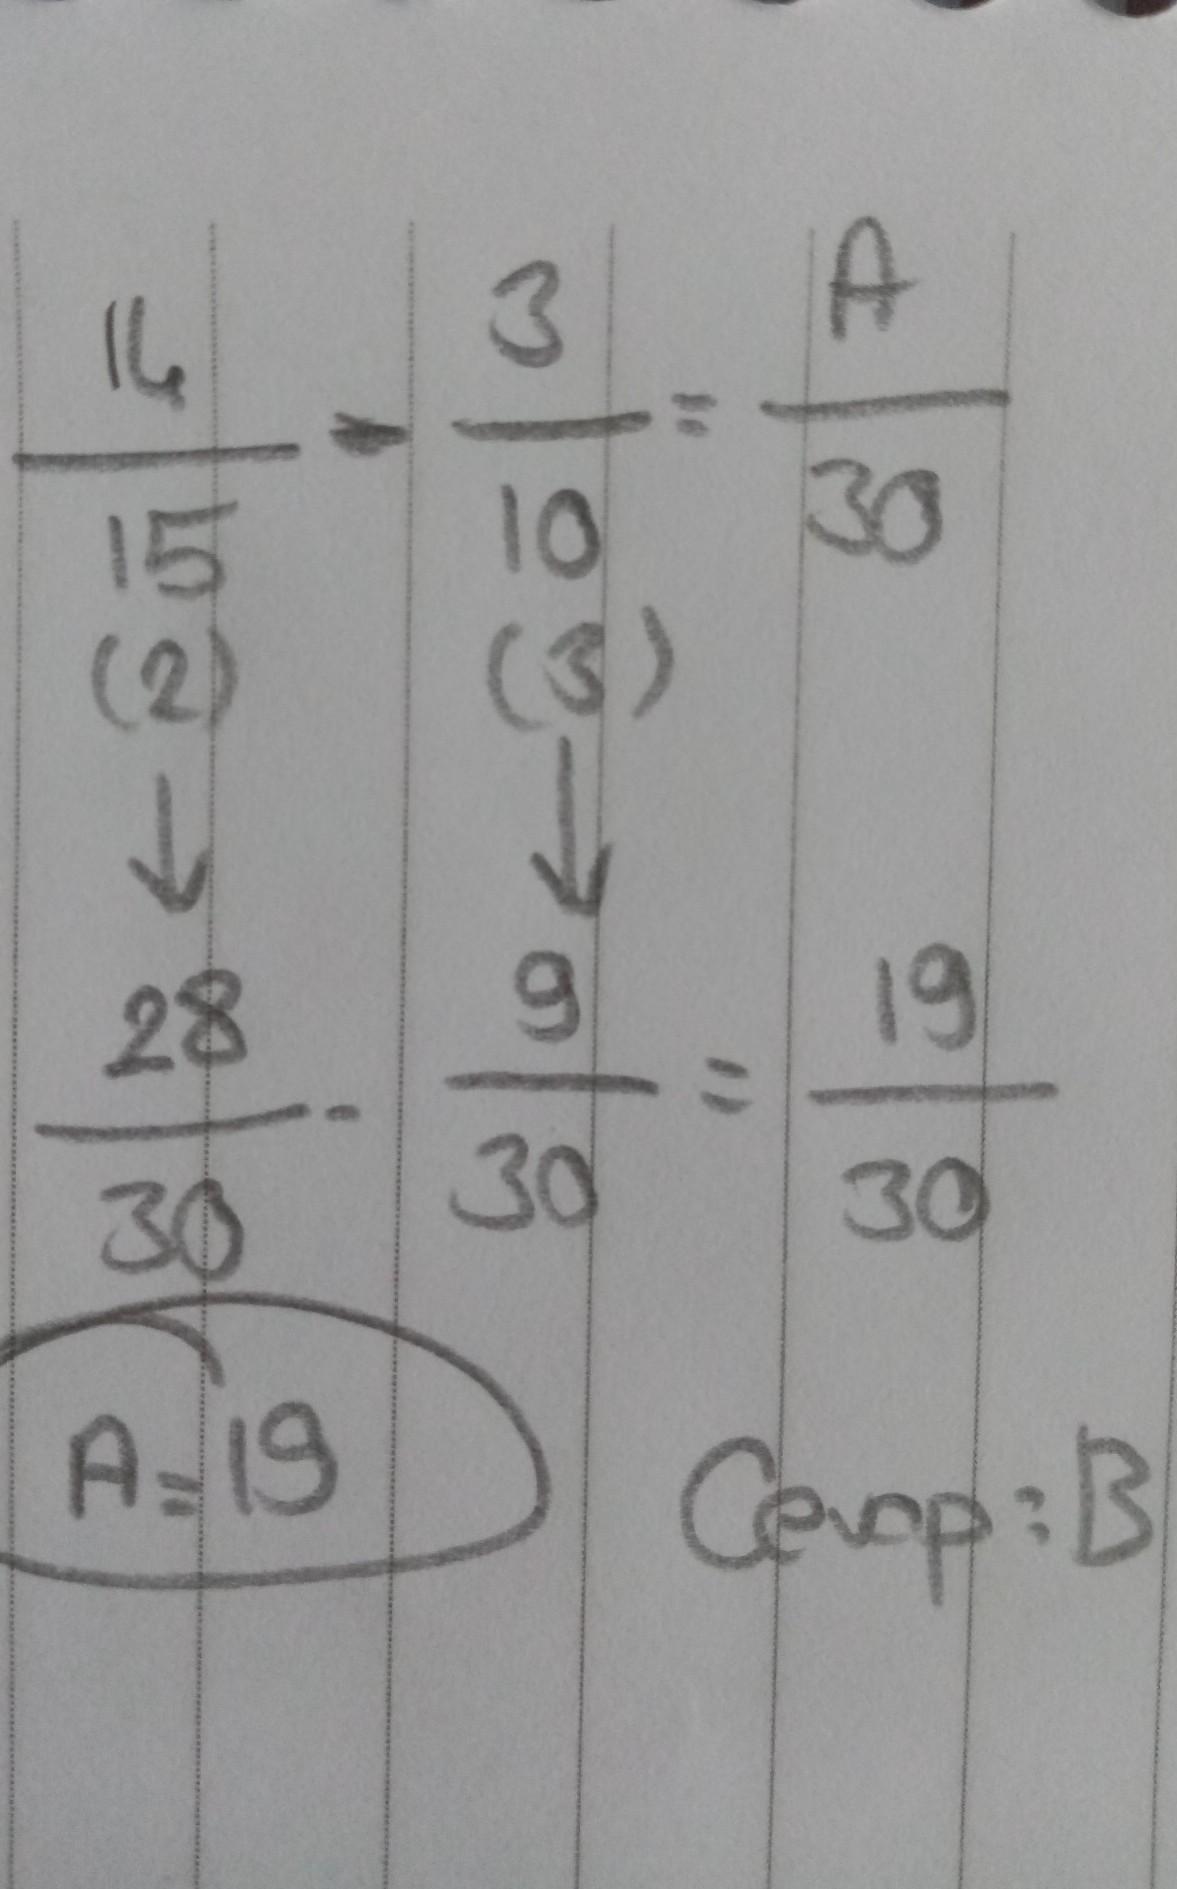 14/15 - 3/10 = A/30
(2) (3)
↓ ↓
28/30 - 9/30 = 19/30
A=19
Cevap: B